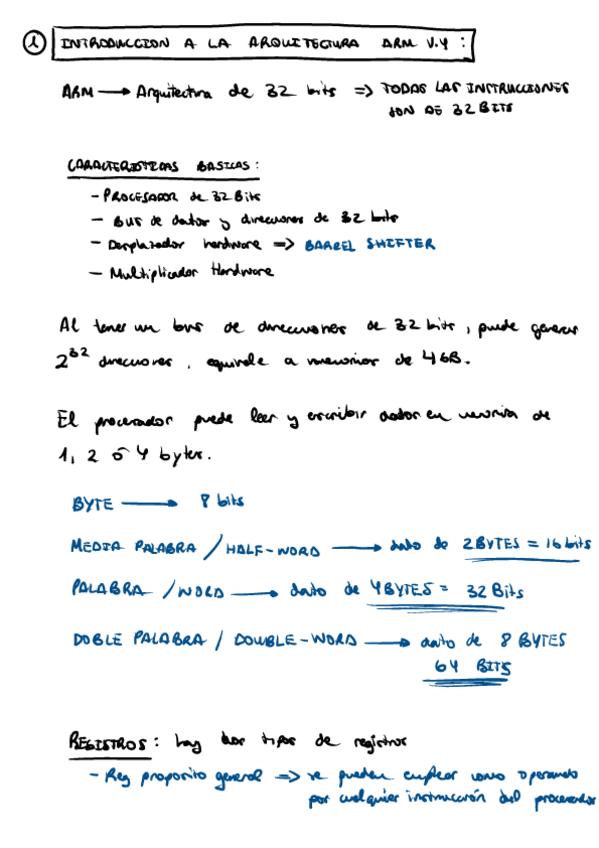 ① INTRODUCCION A LA ARQUITECTURA ARM V.4 :
ARM → Arquitectura de 32 bits => TODAS LAS INSTRUCCIONES
SON DE 32 BITS
CARACTERISTICAS BASICAS :
- PROCESADOR de 32 Bits
- BUS de datos y direcciones de 32 bits
- Desplazador hardware => BARREL SHIFTER
- Multiplicador Hardware
Al tener un bus de direcciones de 32 bits, puede generar
2³² direcciones, equivale a memorias de 4GB.
El procesador puede leer y escribir datos en memoria de
1, 2 ó 4 bytes.
BYTE → 8 bits
MEDIA PALABRA / HALF-WORD → dato de 2BYTES = 16 bits
PALABRA / WORD → dato de 4BYTES = 32 Bits
DOBLE PALABRA / DOUBLE-WORD → dato de 8 BYTES
64 BITS
REGISTROS : hay dos tipos de registros
- Reg proposito general => se pueden emplear como operando
por cualquier instrucción del procesador